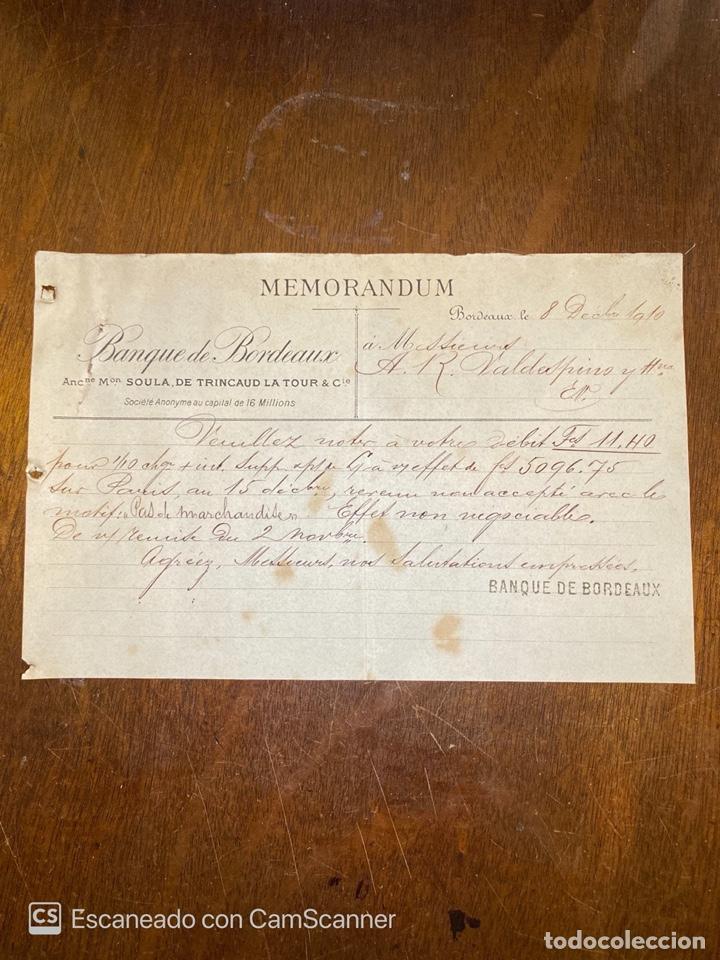 MEMORANDUM
Bordeaux, le 8 Décbre 1910
Banque de Bordeaux
Ancne Mon SOULA, DE TRINCAUD LA TOUR & Cie
Société Anonyme au capital de 16 Millions
à Messieurs
A. R. Valdespino y Hno
Veuillez noter à votre débit Fcs 11.40
pour 1/10 chge + int. supp. à effet de fs 5096.75
sur Paris, au 15 décbre, revenu non accepté avec le
motif: "Pas de marchandise". Effet non négociable.
De v/ remise du 2 Novbre.
Agréez, Messieurs, nos salutations empressées.
BANQUE DE BORDEAUX
CS Escaneado con CamScanner
todocoleccion